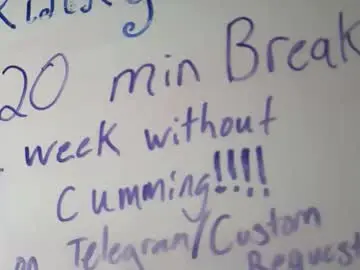 20 min Break
week without
Cumming!!!!
on Telegram/Custom
Request